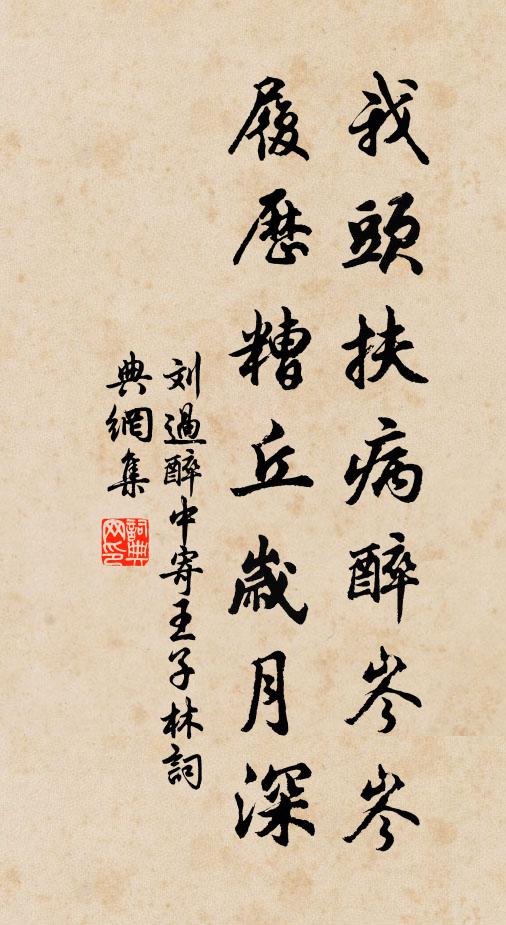 我頭扶病醉岑岑
履歷糟丘歲月深
刘過醉中寄王子林詞
典網集
詞典
网印